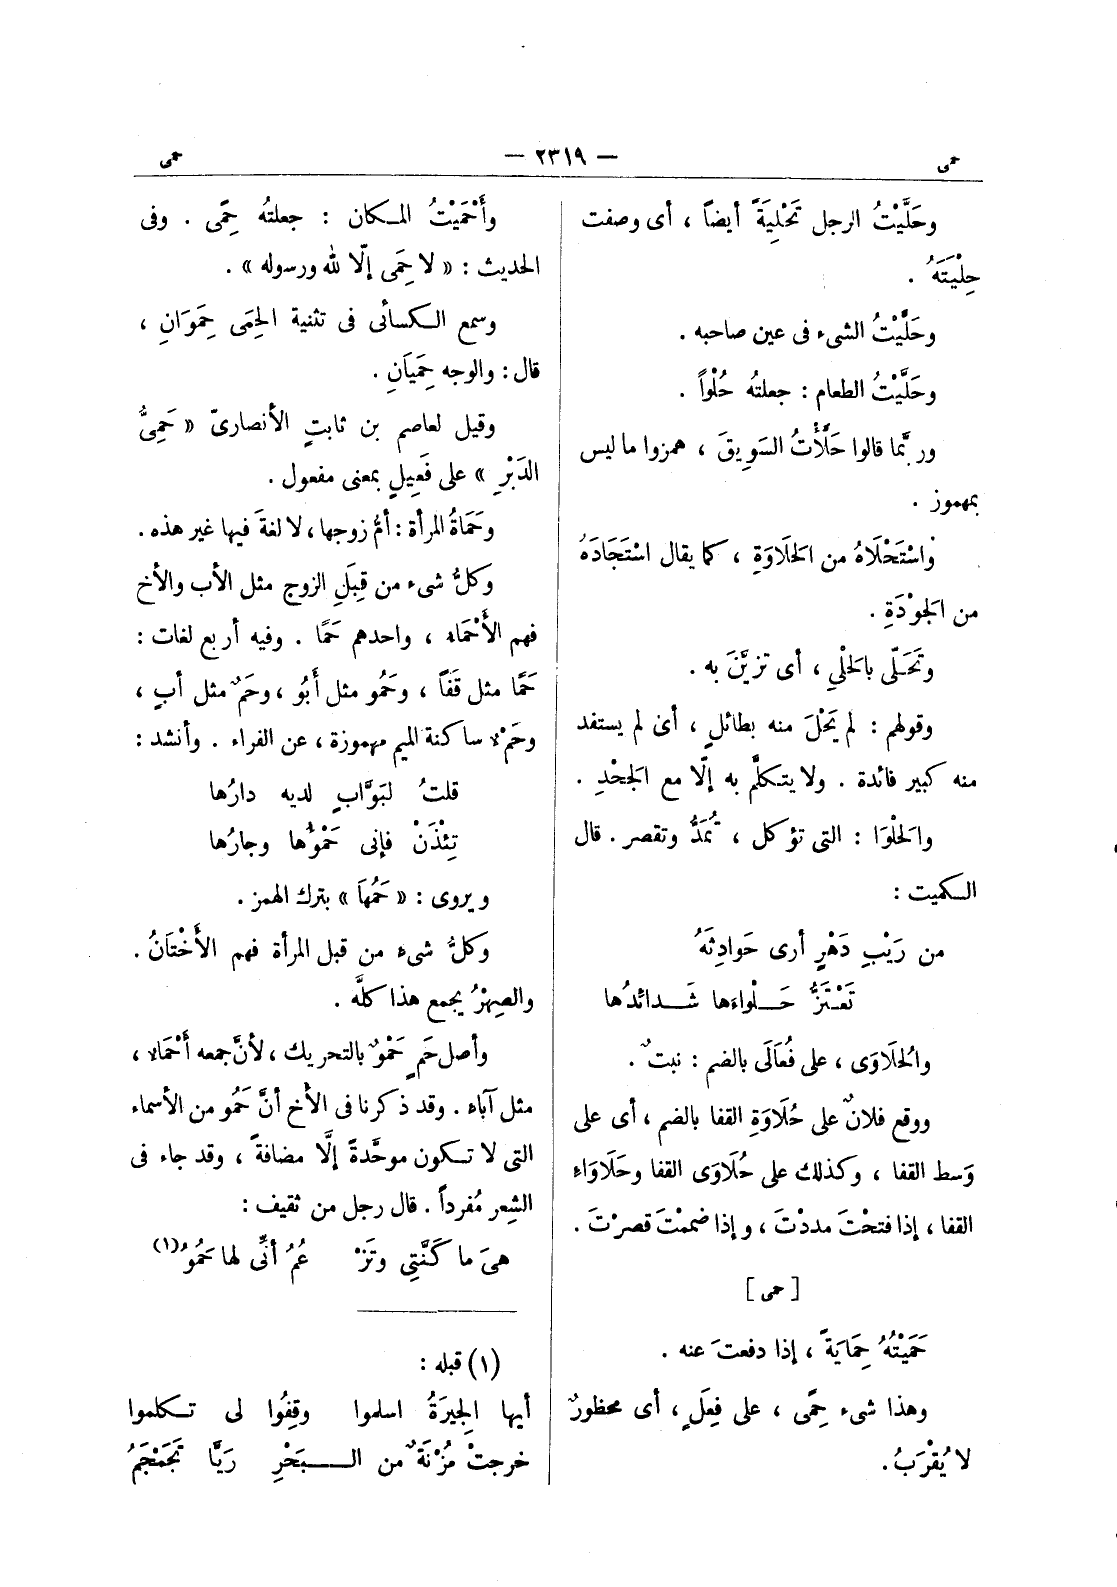 حمى
— ٢٣١٩ —
حمى
وحَلَّيْتُ الرجل تَحْلِيَةً أيضاً ، أى وصفت
حِلْيَتَهُ .
وحَلَّيْتُ الشىء فى عين صاحبه .
وحَلَّيْتُ الطعام : جعلتُه حُلْواً .
وربَّما قالوا حَلَّأْتُ السَوِيقَ ، همزوا ما ليس
بمهموز .
واسْتَحْلَاهُ من الحَلَاوَةِ ، كما يقال اسْتَجَادَهُ
من الجَوْدَةِ .
وتَحَلَّى بالحَلْىِ ، أى تزيَّنَ به .
وقولهم : لم يَحْلَ منه بطائلٍ ، أى لم يستفد
منه كبير فائدة . ولا يتكلَّم به إلّا مع الجَحْدِ .
والحَلْوَا : التى تؤكل ، تُمَدُّ وتقصر . قال
الكميت :
من رَيْبِ دَهْرٍ أرى حَوَادِثَهُ
تَعْتَزُّ حَلْواءَها شَدائدُها
والحُلَاوَى ، على فُعَالَى بالضم : نبتٌ .
ووقع فلانٌ على حُلَاوَةِ القفا بالضم ، أى على
وَسط القفا ، وكذلك على حُلَاوَى القفا وحَلَاوَاءِ
القفا ، إذا فتحْتَ مددْتَ ، وإذا ضممْتَ قصرْتَ .
[ حمى ]
حَمَيْتُهُ حِمَايَةً ، إذا دفعتَ عنه .
وهذا شىء حِمًى ، على فِعَلٍ ، أى محظورٌ
لا يُقْرَبُ .
وأَحْمَيْتُ المكان : جعلتُه حِمًى . وفى
الحديث : « لا حِمَى إلّا لله ورسوله » .
وسمع الكسائى فى تثنية الحِمَى حِمَوَانِ ،
قال : والوجه حِمَيَانِ .
وقيل لعاصم بن ثابتٍ الأنصارىّ « حَمِىُّ
الدَبْرِ » على فَعِيلٍ بمعنى مفعول .
وحَمَاةُ المرأة : أمُّ زوجها ، لا لغةَ فيها غير هذه .
وكلُّ شىء من قِبَلِ الزوج مثل الأب والأخ
فهم الأَحْمَاء ، واحدهم حَمًا . وفيه أربع لغات :
حَمًا مثل قَفًا ، وحَمُو مثل أَبُو ، وحَمٌ مثل أبٍ ،
وحَمْءٌ ساكنة الميم مهموزة ، عن الفراء . وأنشد :
قلتُ لبَوَّابٍ لديه دارُها
تِئْذَنْ فإنى حَمْؤُها وجارُها
ويروى : « حَمُهَا » بترك الهمز .
وكلُّ شىءٍ من قبل المرأة فهم الأَخْتَانُ .
والصِهْرُ يجمع هذا كلَّه .
وأصل حَمٍ حَمَوٌ بالتحريك ، لأنَّ جمعه أَحْمَاءٌ ،
مثل آباء . وقد ذكرنا فى الأخ أنَّ حَمُو من الأسماء
التى لا تكون موحَّدةً إلَّا مضافةً ، وقد جاء فى
الشِعر مُفرداً . قال رجل من ثقيف :
هىَ ما كَنَّتِى وتَزْ عُمُ أنِّى لها حَمُوُ (١)
(١) قبله :
أيها الجِيرَةُ اسلموا وقِفُوا لى تكلموا
خرجتْ مُزْنَةٌ من الـبَحْرِ رَيَّا تَجَمْجَمُ